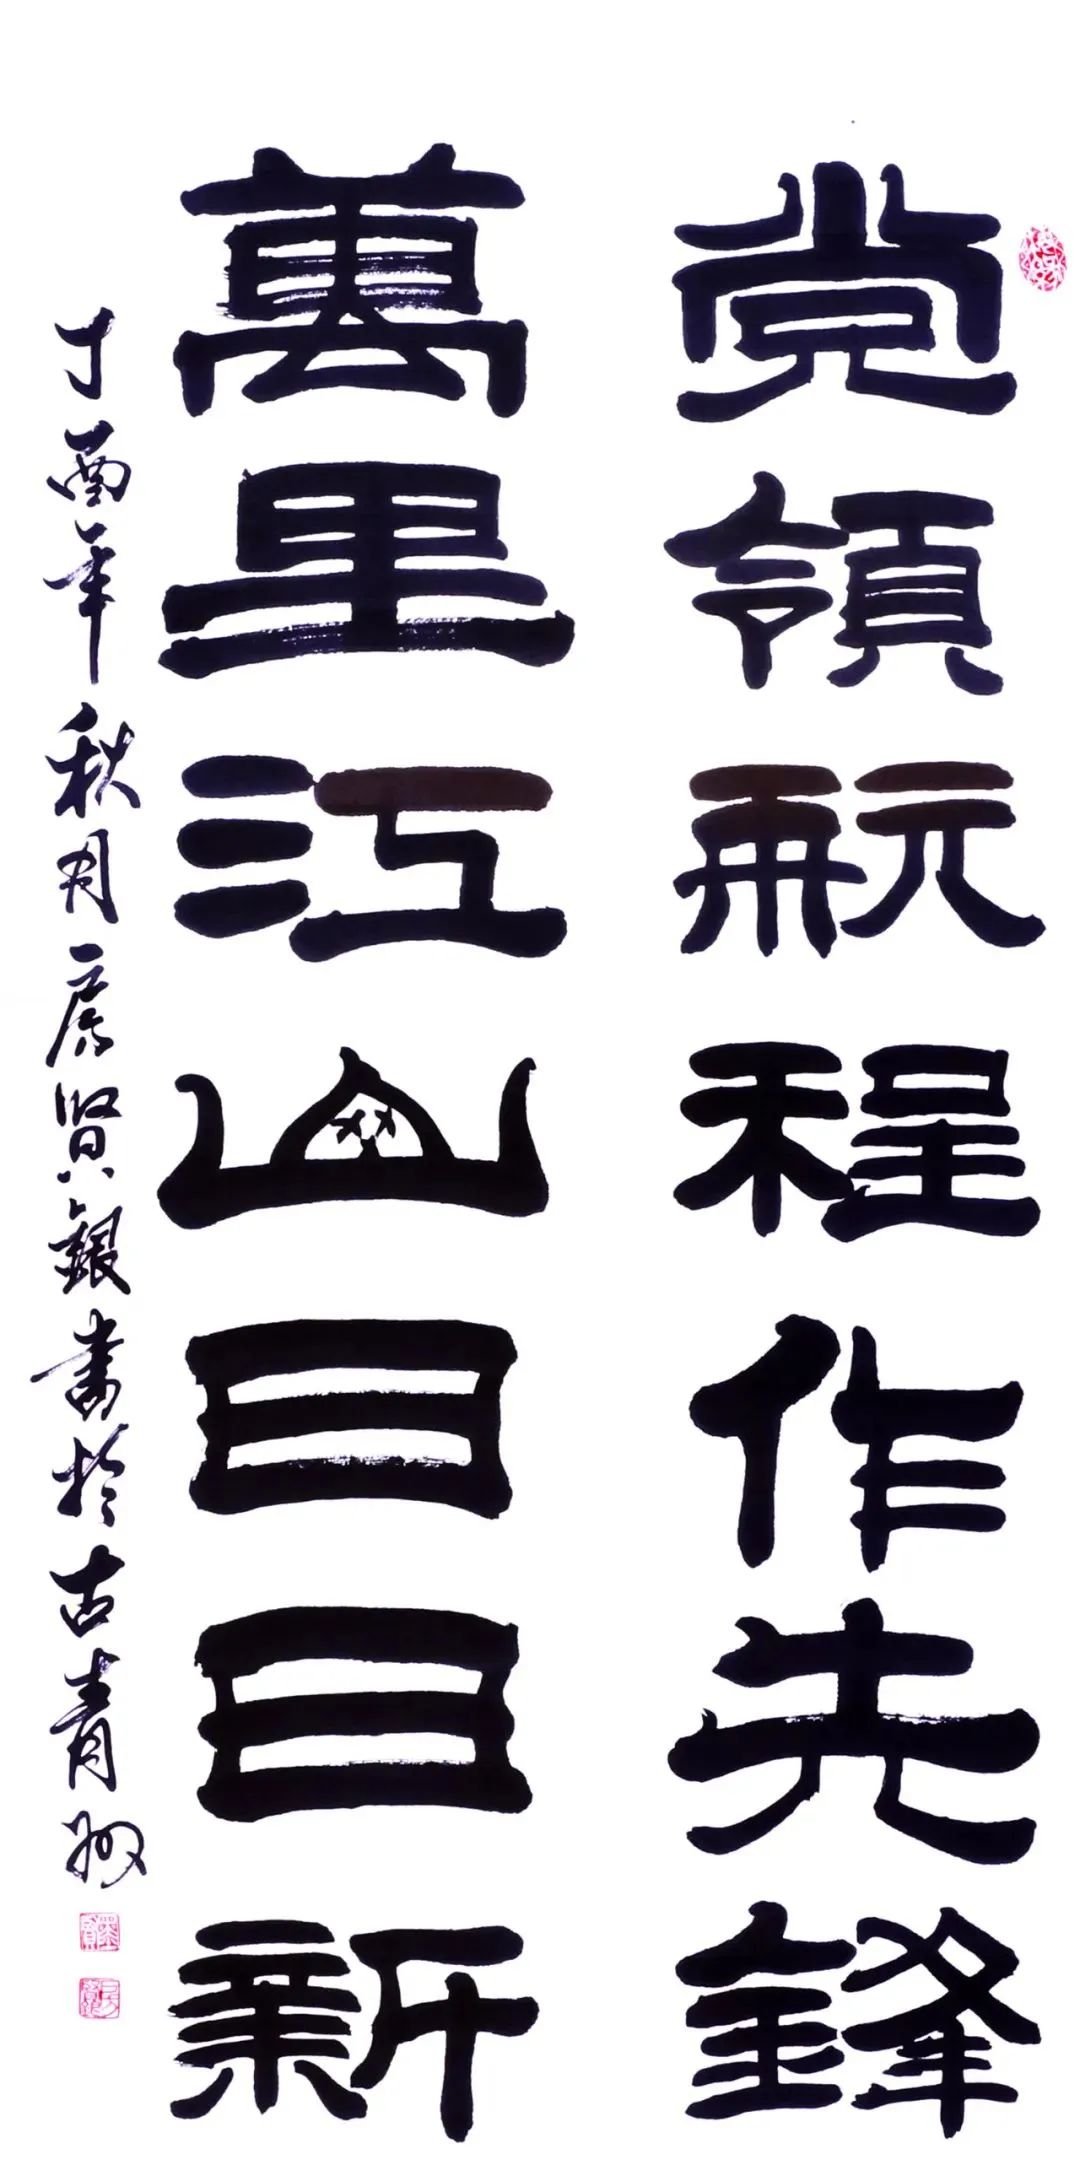 党領航程作先鋒
萬里江山日日新
丁酉年秋月房賢銀書於古青州